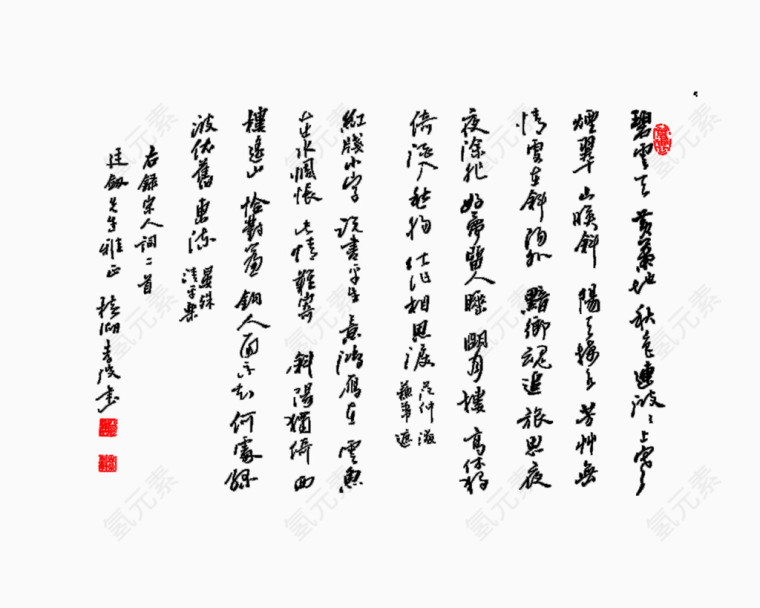 碧雲天黃葉地秋色連波〻上寒
煙翠山暎斜陽天接水芳艸無
情更在斜陽外黯鄉魂追旅思夜
夜除非好夢留人睡明月樓高休獨
倚酒入愁腸化作相思淚
范仲淹
蘇幕遮
紅牋小字說盡平生意鴻雁在雲魚
在水惆悵此情難寄斜陽獨倚西
樓遙山恰對簾鉤人面不知何處綠
波依舊東流
晏殊
清平樂
右錄宋人詞二首
先生雅正
氢元素